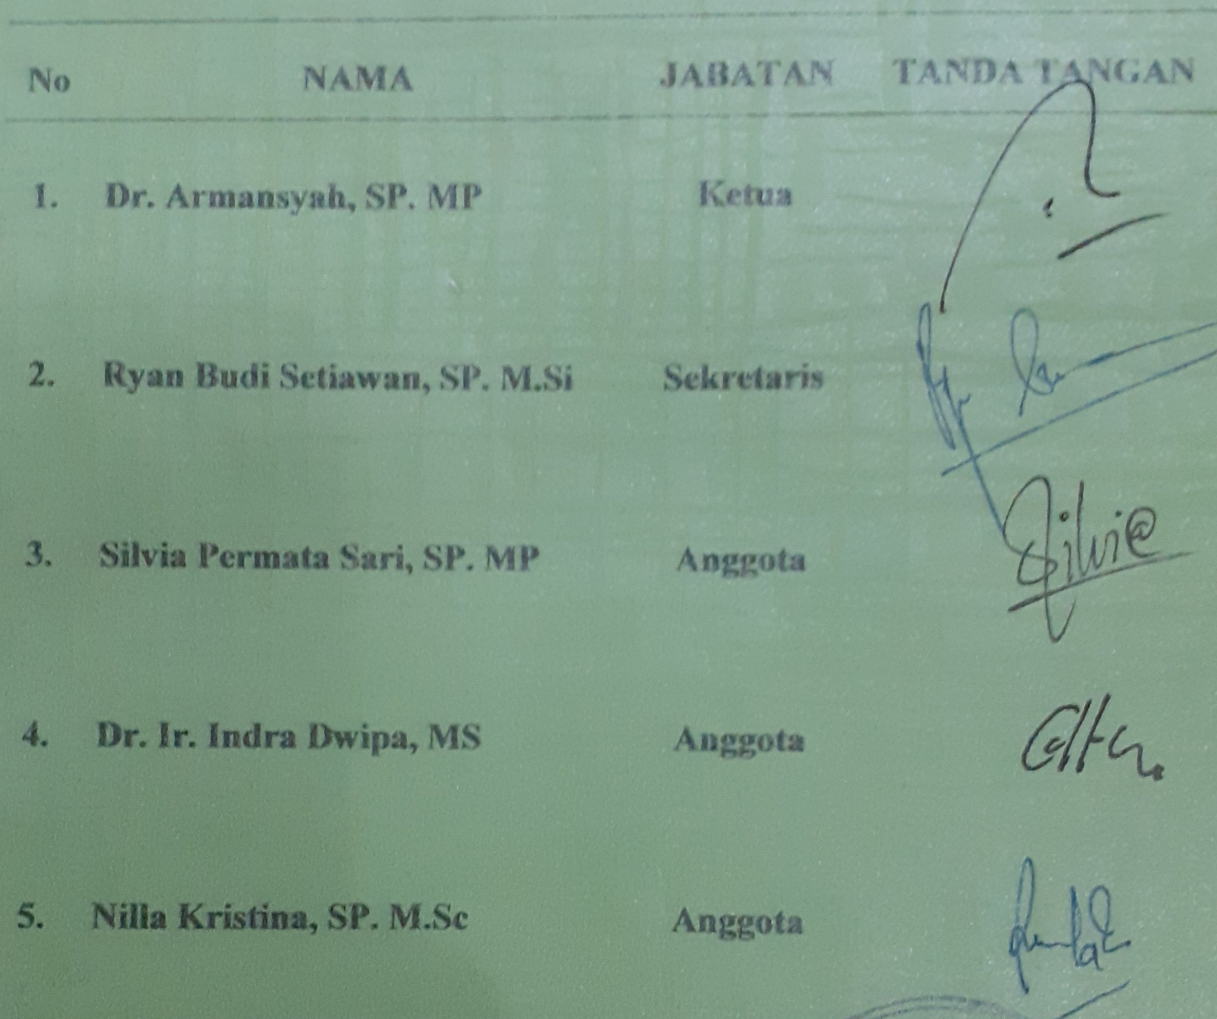 No NAMA JABATAN TANDA TANGAN
1. Dr. Armansyah, SP. MP Ketua
2. Ryan Budi Setiawan, SP. M.Si Sekretaris
3. Silvia Permata Sari, SP. MP Anggota Silvi@
4. Dr. Ir. Indra Dwipa, MS Anggota
5. Nilla Kristina, SP. M.Sc Anggota